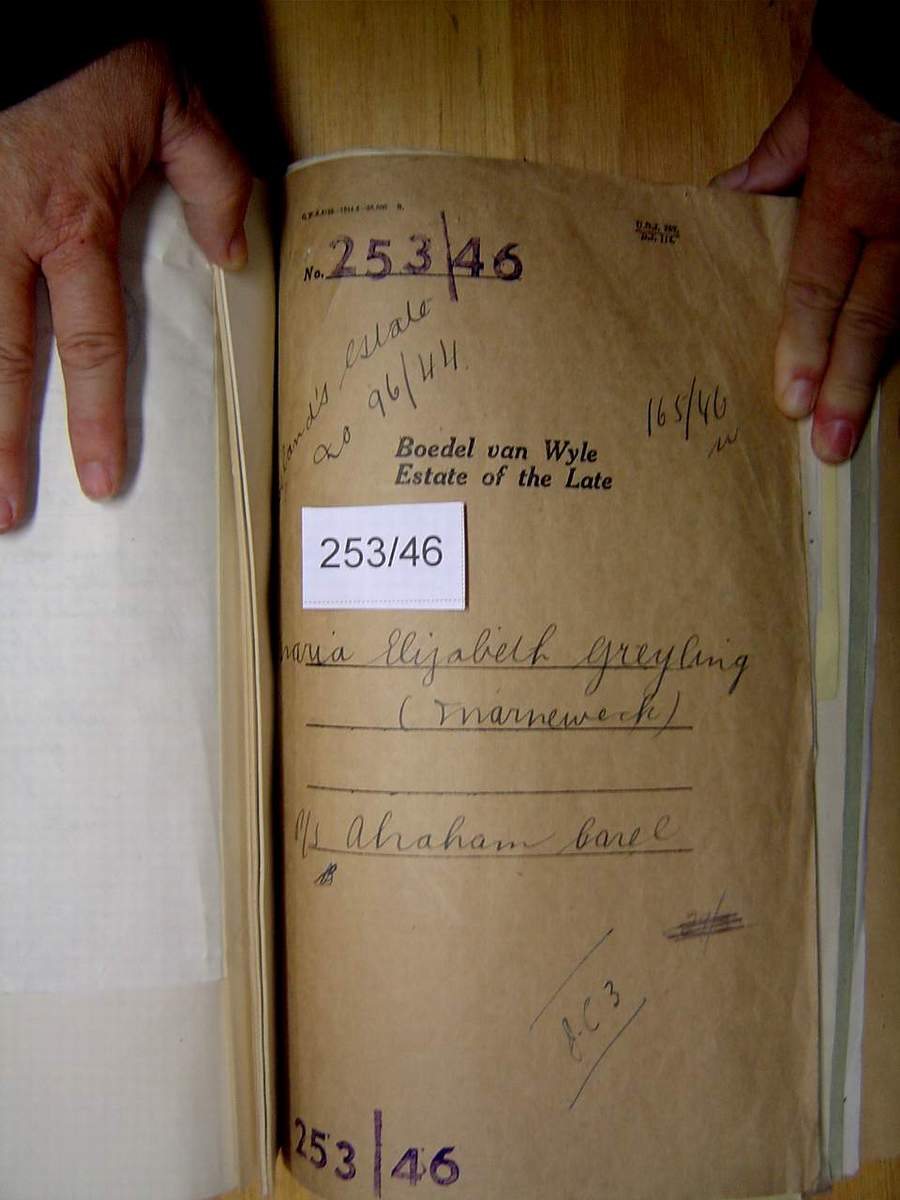 No. 253/46
estate
20 96/44.
165/46
Boedel van Wyle
Estate of the Late
253/46
maria Elizabeth Greyling
(Marneweck)
Abraham Carel
253/46